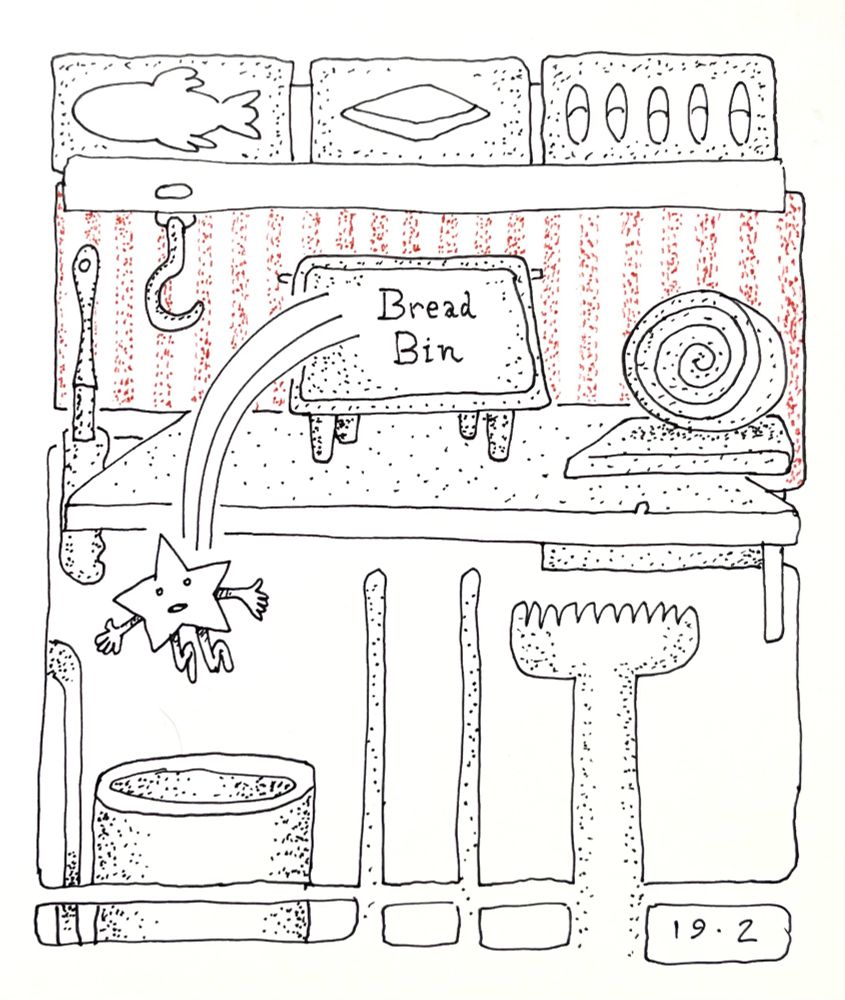 Bread
Bin
19.2